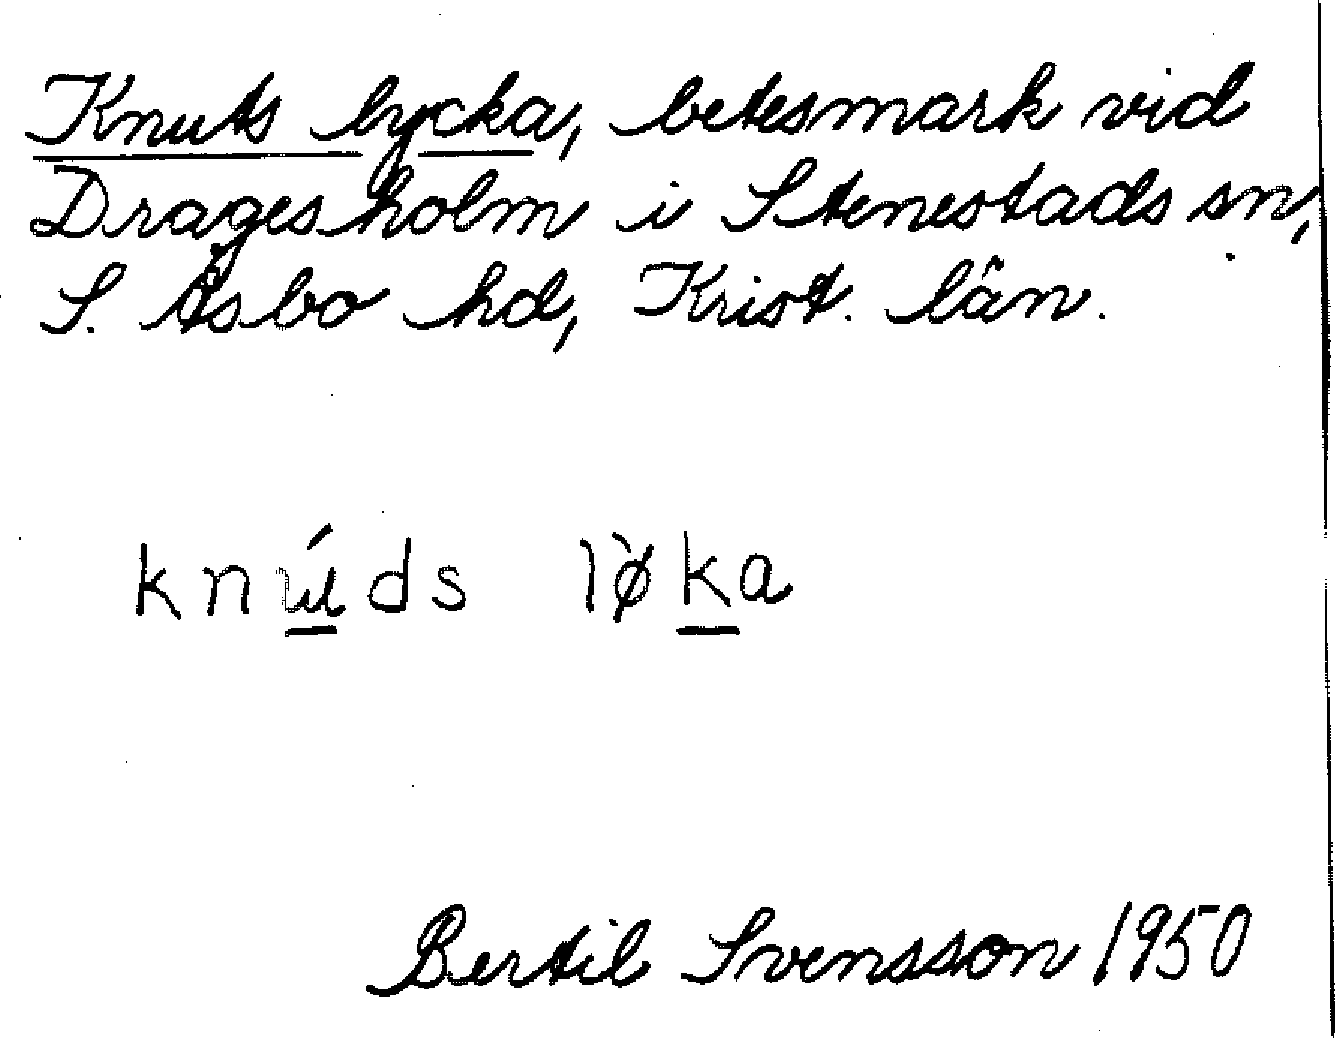 Knuts lycka, betesmark vid
Dragesholm i Stenestads sn,
S. Åsbo hd, Krist. län.
knú̱ds lø̀ḵa
Bertil Svensson 1950